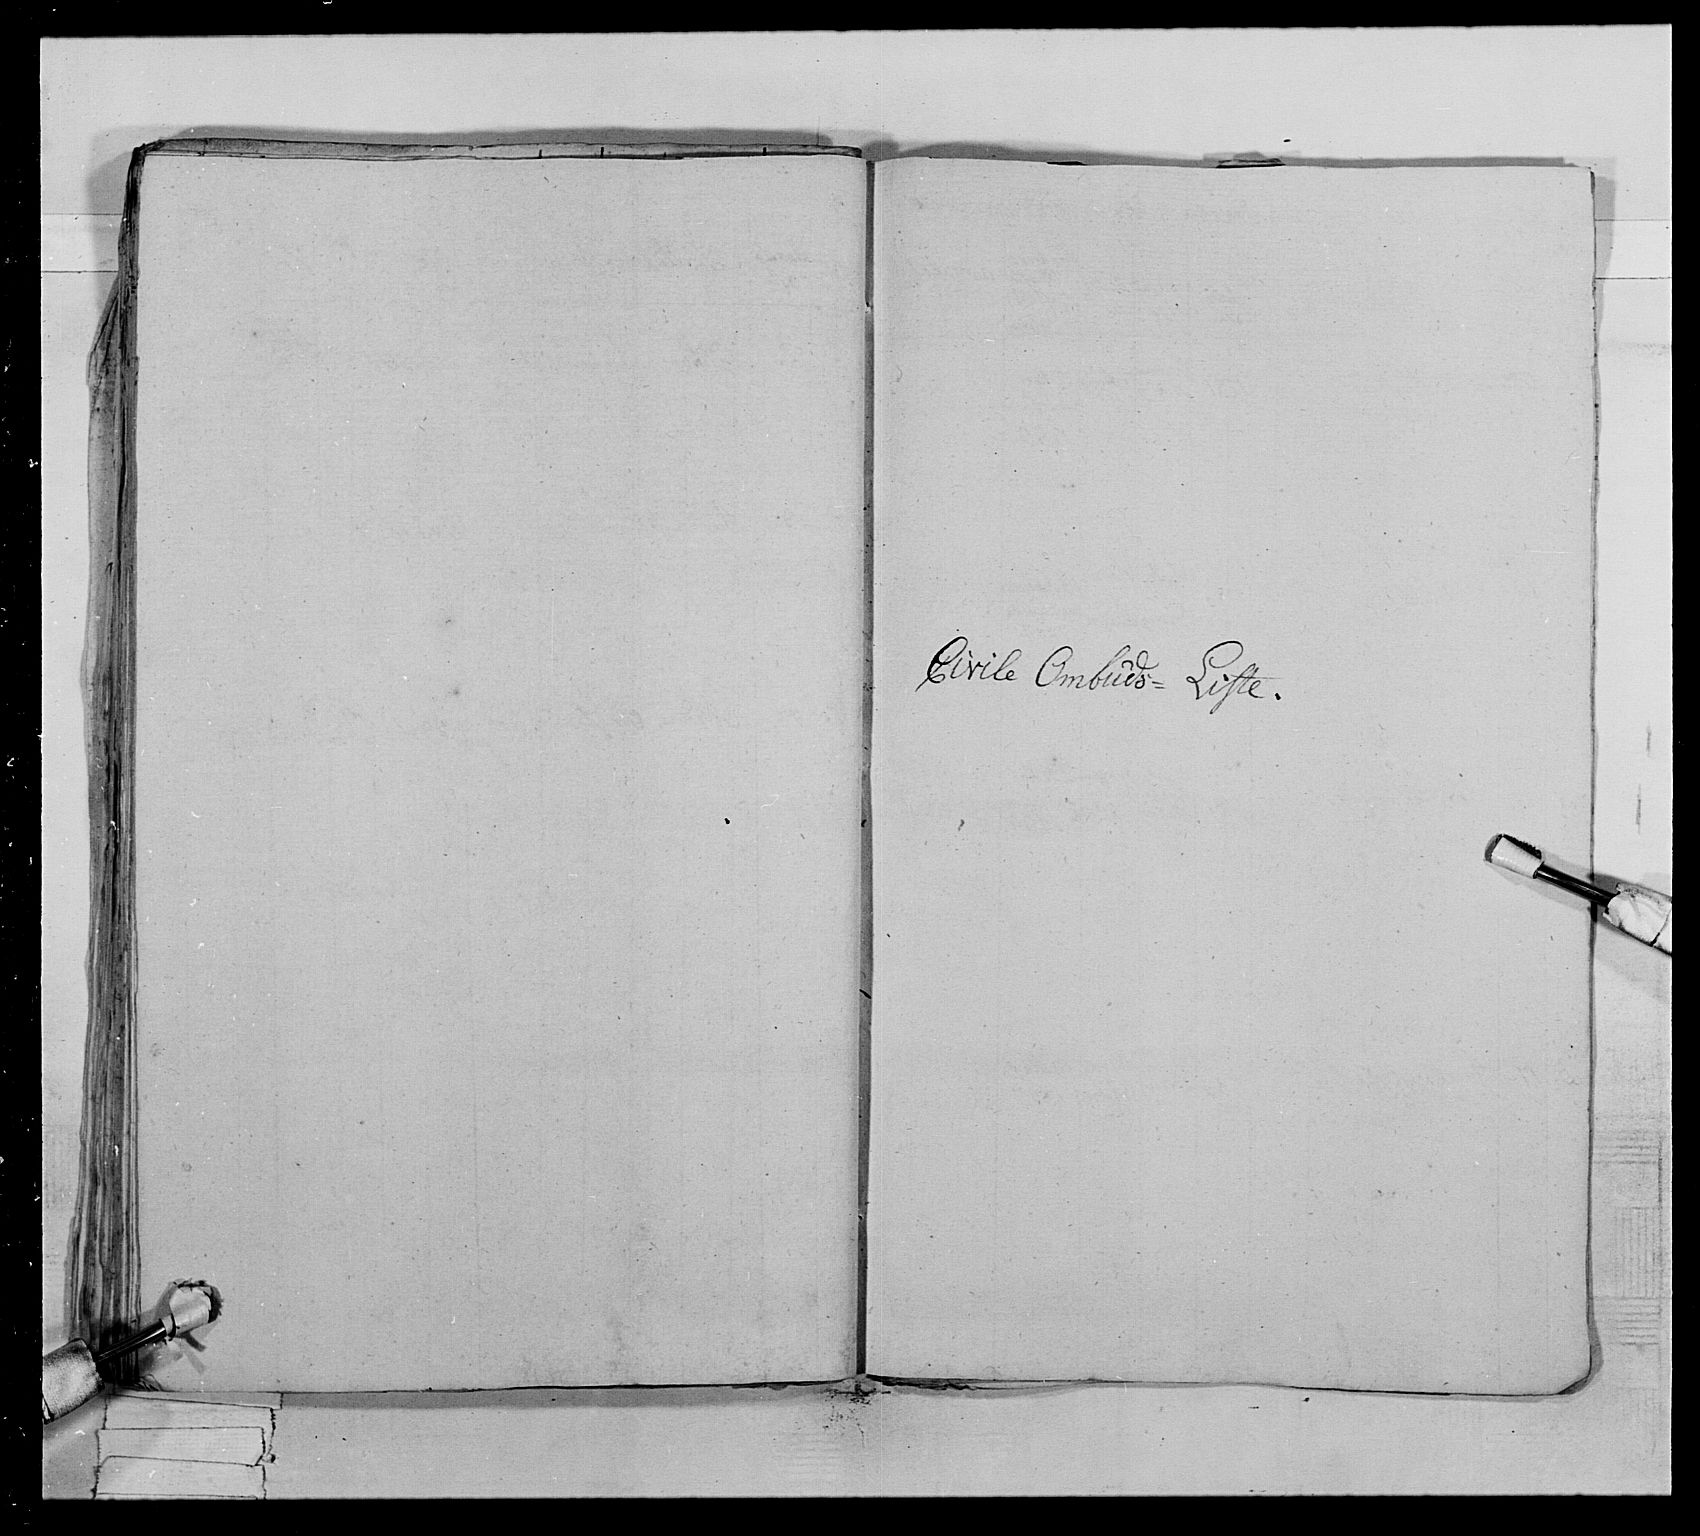 Civile Ombuds= Liste.